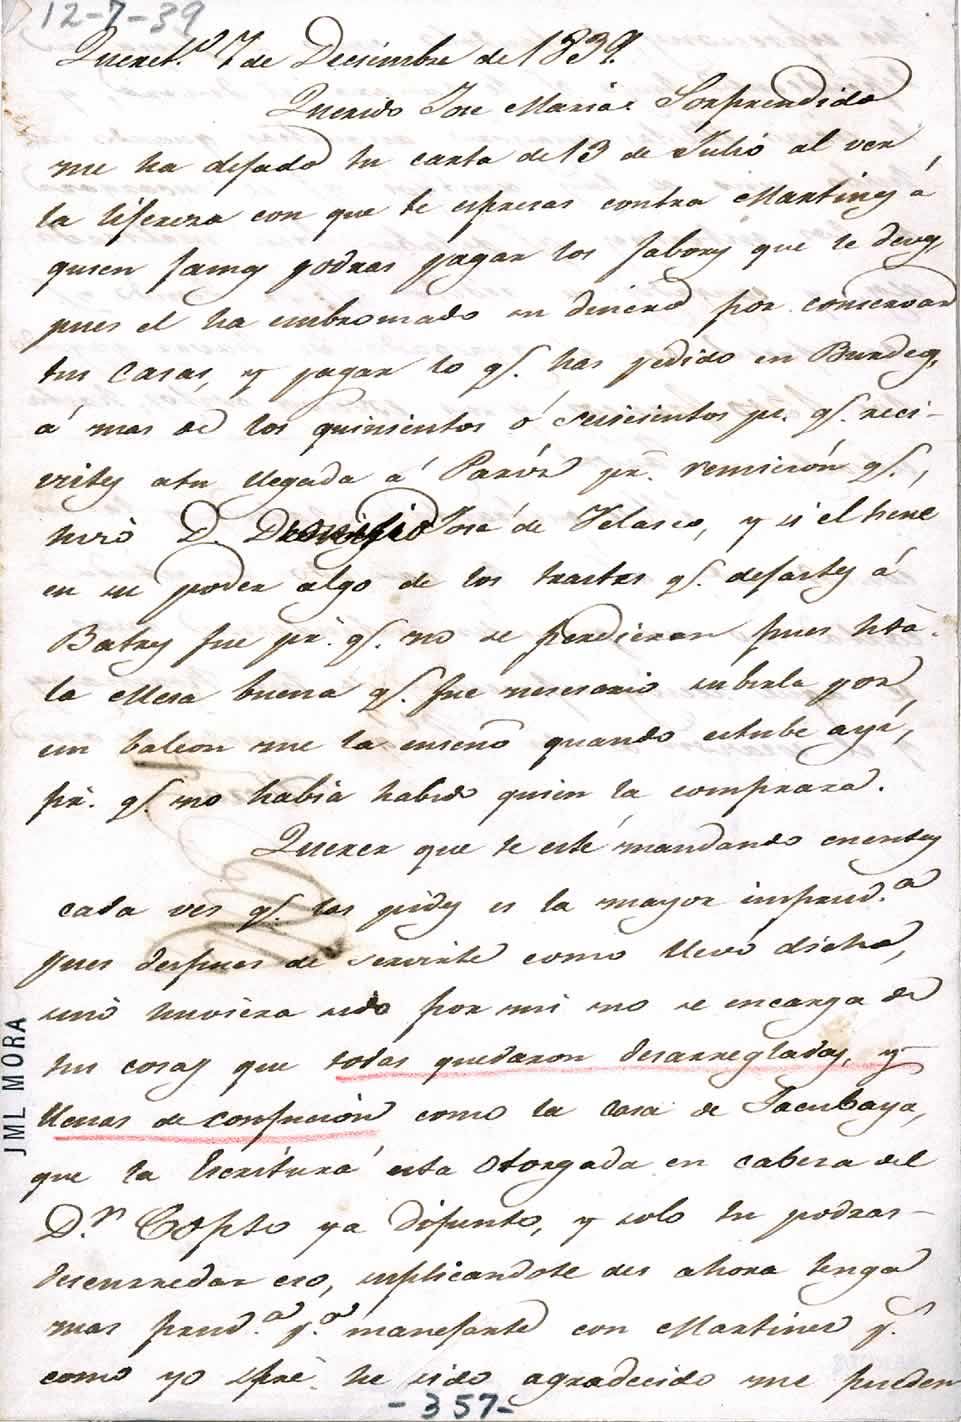 12-7-39
Queret.º 7 de Deciembre de 1839.
Querido Jose Maria: Sorprendido
me ha dejado tu carta de 13 de Julio al ver
la lijereza con que te espresas contra Martinez á
quien jamas podras pagar los fabores que le deves
pues el ha embromado su dinero por conservar
tus Casas, y pagar lo q.e has pedido en Burdeos,
á mas de los quinientos ó seiscientos ps. q.e reci-
vistes a tu llegada á París pr. remisión q.e,
hizo D. José de Velasco, y si el tiene
en su poder algo de los trastes q.e dejastes á
Batres fue pr. q.e no se perdieran pues hta.
la Mesa buena q.e fue nesesario subirla por
un balcon me la enseñó quando estube ayí,
pr. q.e no habia habido quien la comprara.
Querer que te esté mandando cuentas
cada ves q.e las pides es la mayor imprud.a
pues despues de servirte como llevo dicho,
sinó huviera sido por mi no se encarga de
tus cosas que todas quedaron desarregladas, y
llenas de confución como la casa de Tacubaya,
que la Escritura esta otorgada en cabesa del
D.r Copto ya difunto, y solo tu podras
desenrredar eso, suplicandote des ahora tengas
mas prud.a p.a manejarte con Martines p.
como yo spre. he sido agradecido me pueden
-357-
JML MORA